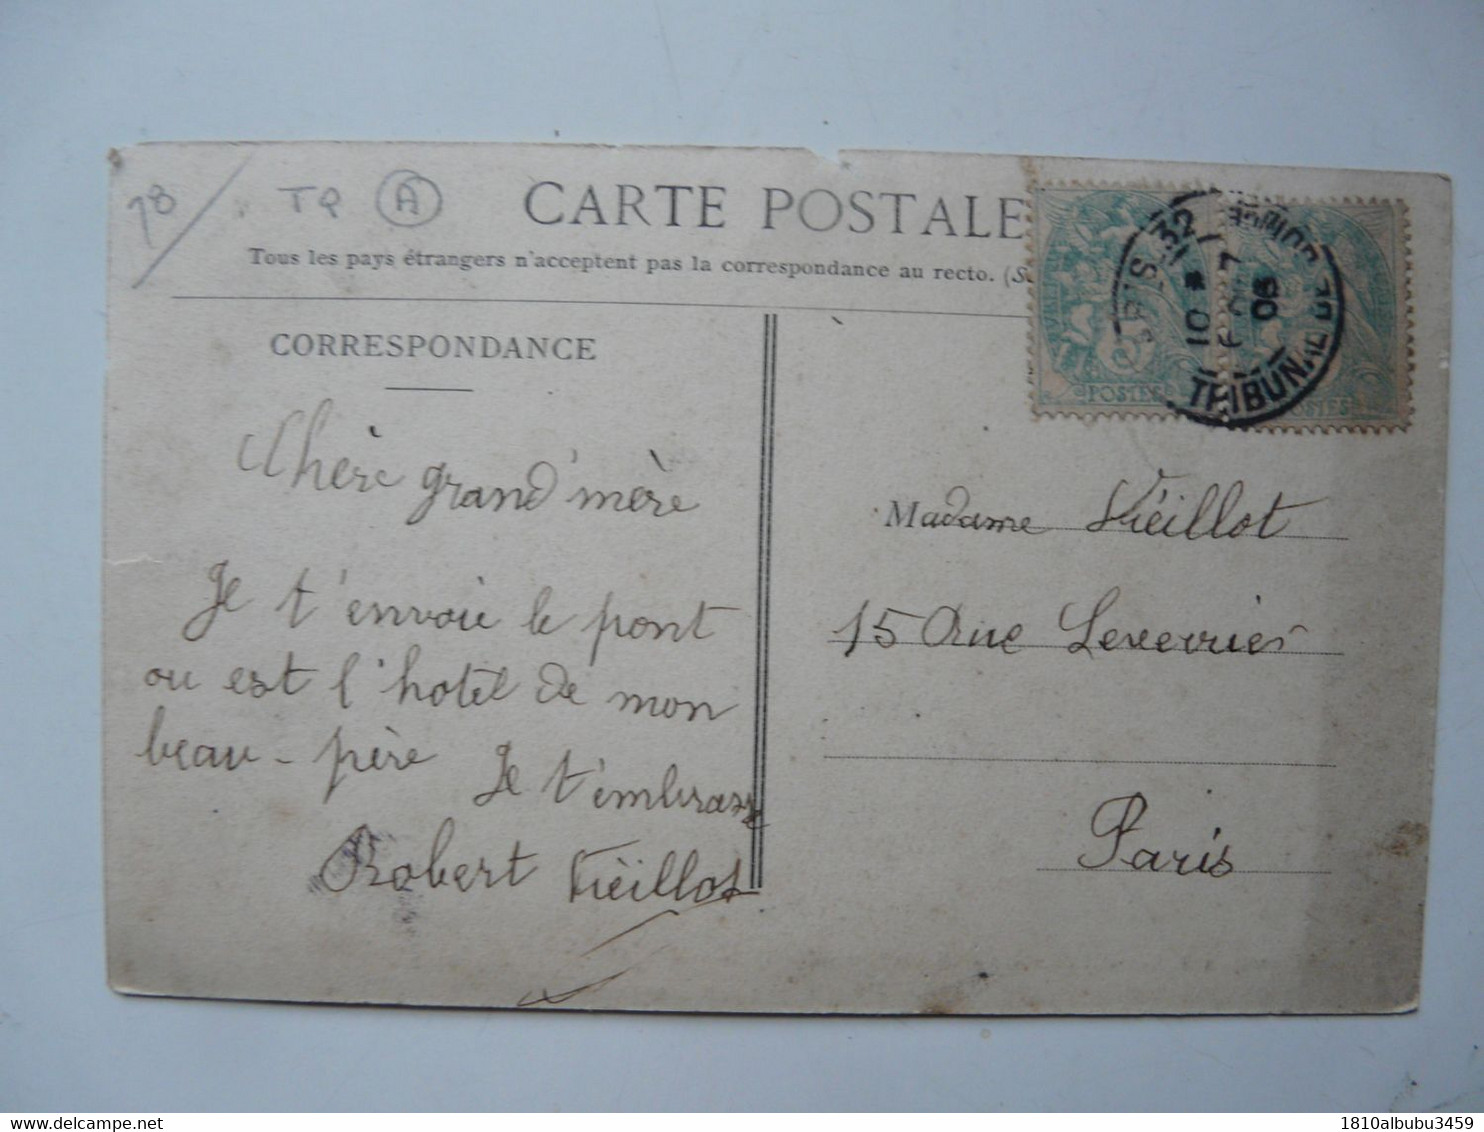 78
TQ A
CARTE POSTALE
Tous les pays étrangers n'acceptent pas la correspondance au recto. (S
CORRESPONDANCE
Chère grand'mère
Je t'envoie le pont
ou est l'hotel de mon
beau-père Je t'embrasse
Robert Vieillot
PARIS 32
10
7
08
TRIBUNAL DE
POSTES
POSTES
Madame Vieillot
15 Rue Leverrier
Paris
1810albubu3459